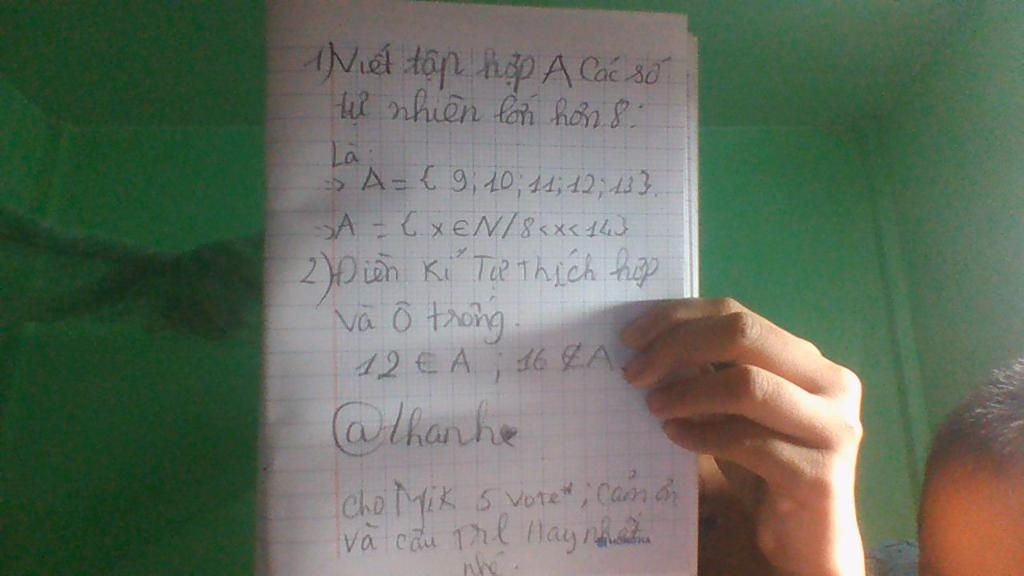 1) Viết tập hợp A Các số
tự nhiên lớn hơn 8:
Là:
=> A = { 9; 10; 11; 12; 13}.
=> A = { x ∈ N / 8 < x < 14}
2) Điền Kí Tự Thích hợp
và Ô trống.
12 ∈ A ; 16 ∉ A.
@thanh
cho Mik 5 vote*; cảm ơn
và câu Trl Hay nhất
HONG HA
nhé.